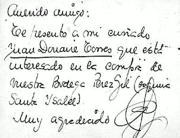 Querido amigo:
Te resento a mi cuñado
Juan Donaire Torres que está
interesado en la compra de
nuestra Bodega Ruiz Gil (esquina
Santa y Saldo)
Muy agradecido